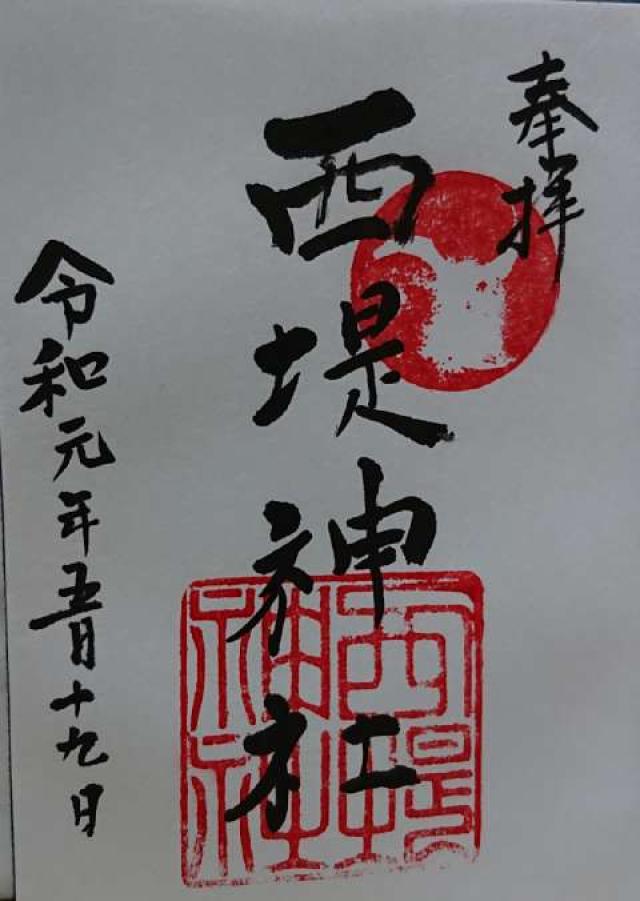 奉拝
西堤神社
西堤
神社
令和元年五月十九日